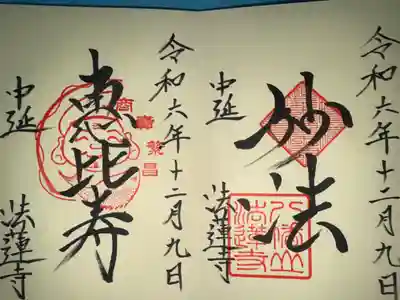 令和六年十二月九日
妙法
中延
法蓮寺
令和六年十二月九日
恵比寿
商売繁昌
中延
法蓮寺